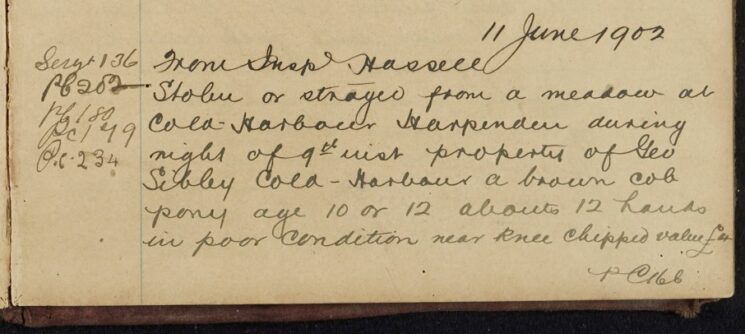 11 June 1902
Sergt 136
From Inspr Hassell
Pc 202
Stolen or strayed from a meadow at
Pc 180
Cold-Harbour Harpenden during
Pc 149
night of 9th inst property of Geo
Pc 234
Sibley Cold-Harbour a brown cob
pony age 10 or 12 abouts 12 hands
in poor condition near knee chipped value £4
PC 166